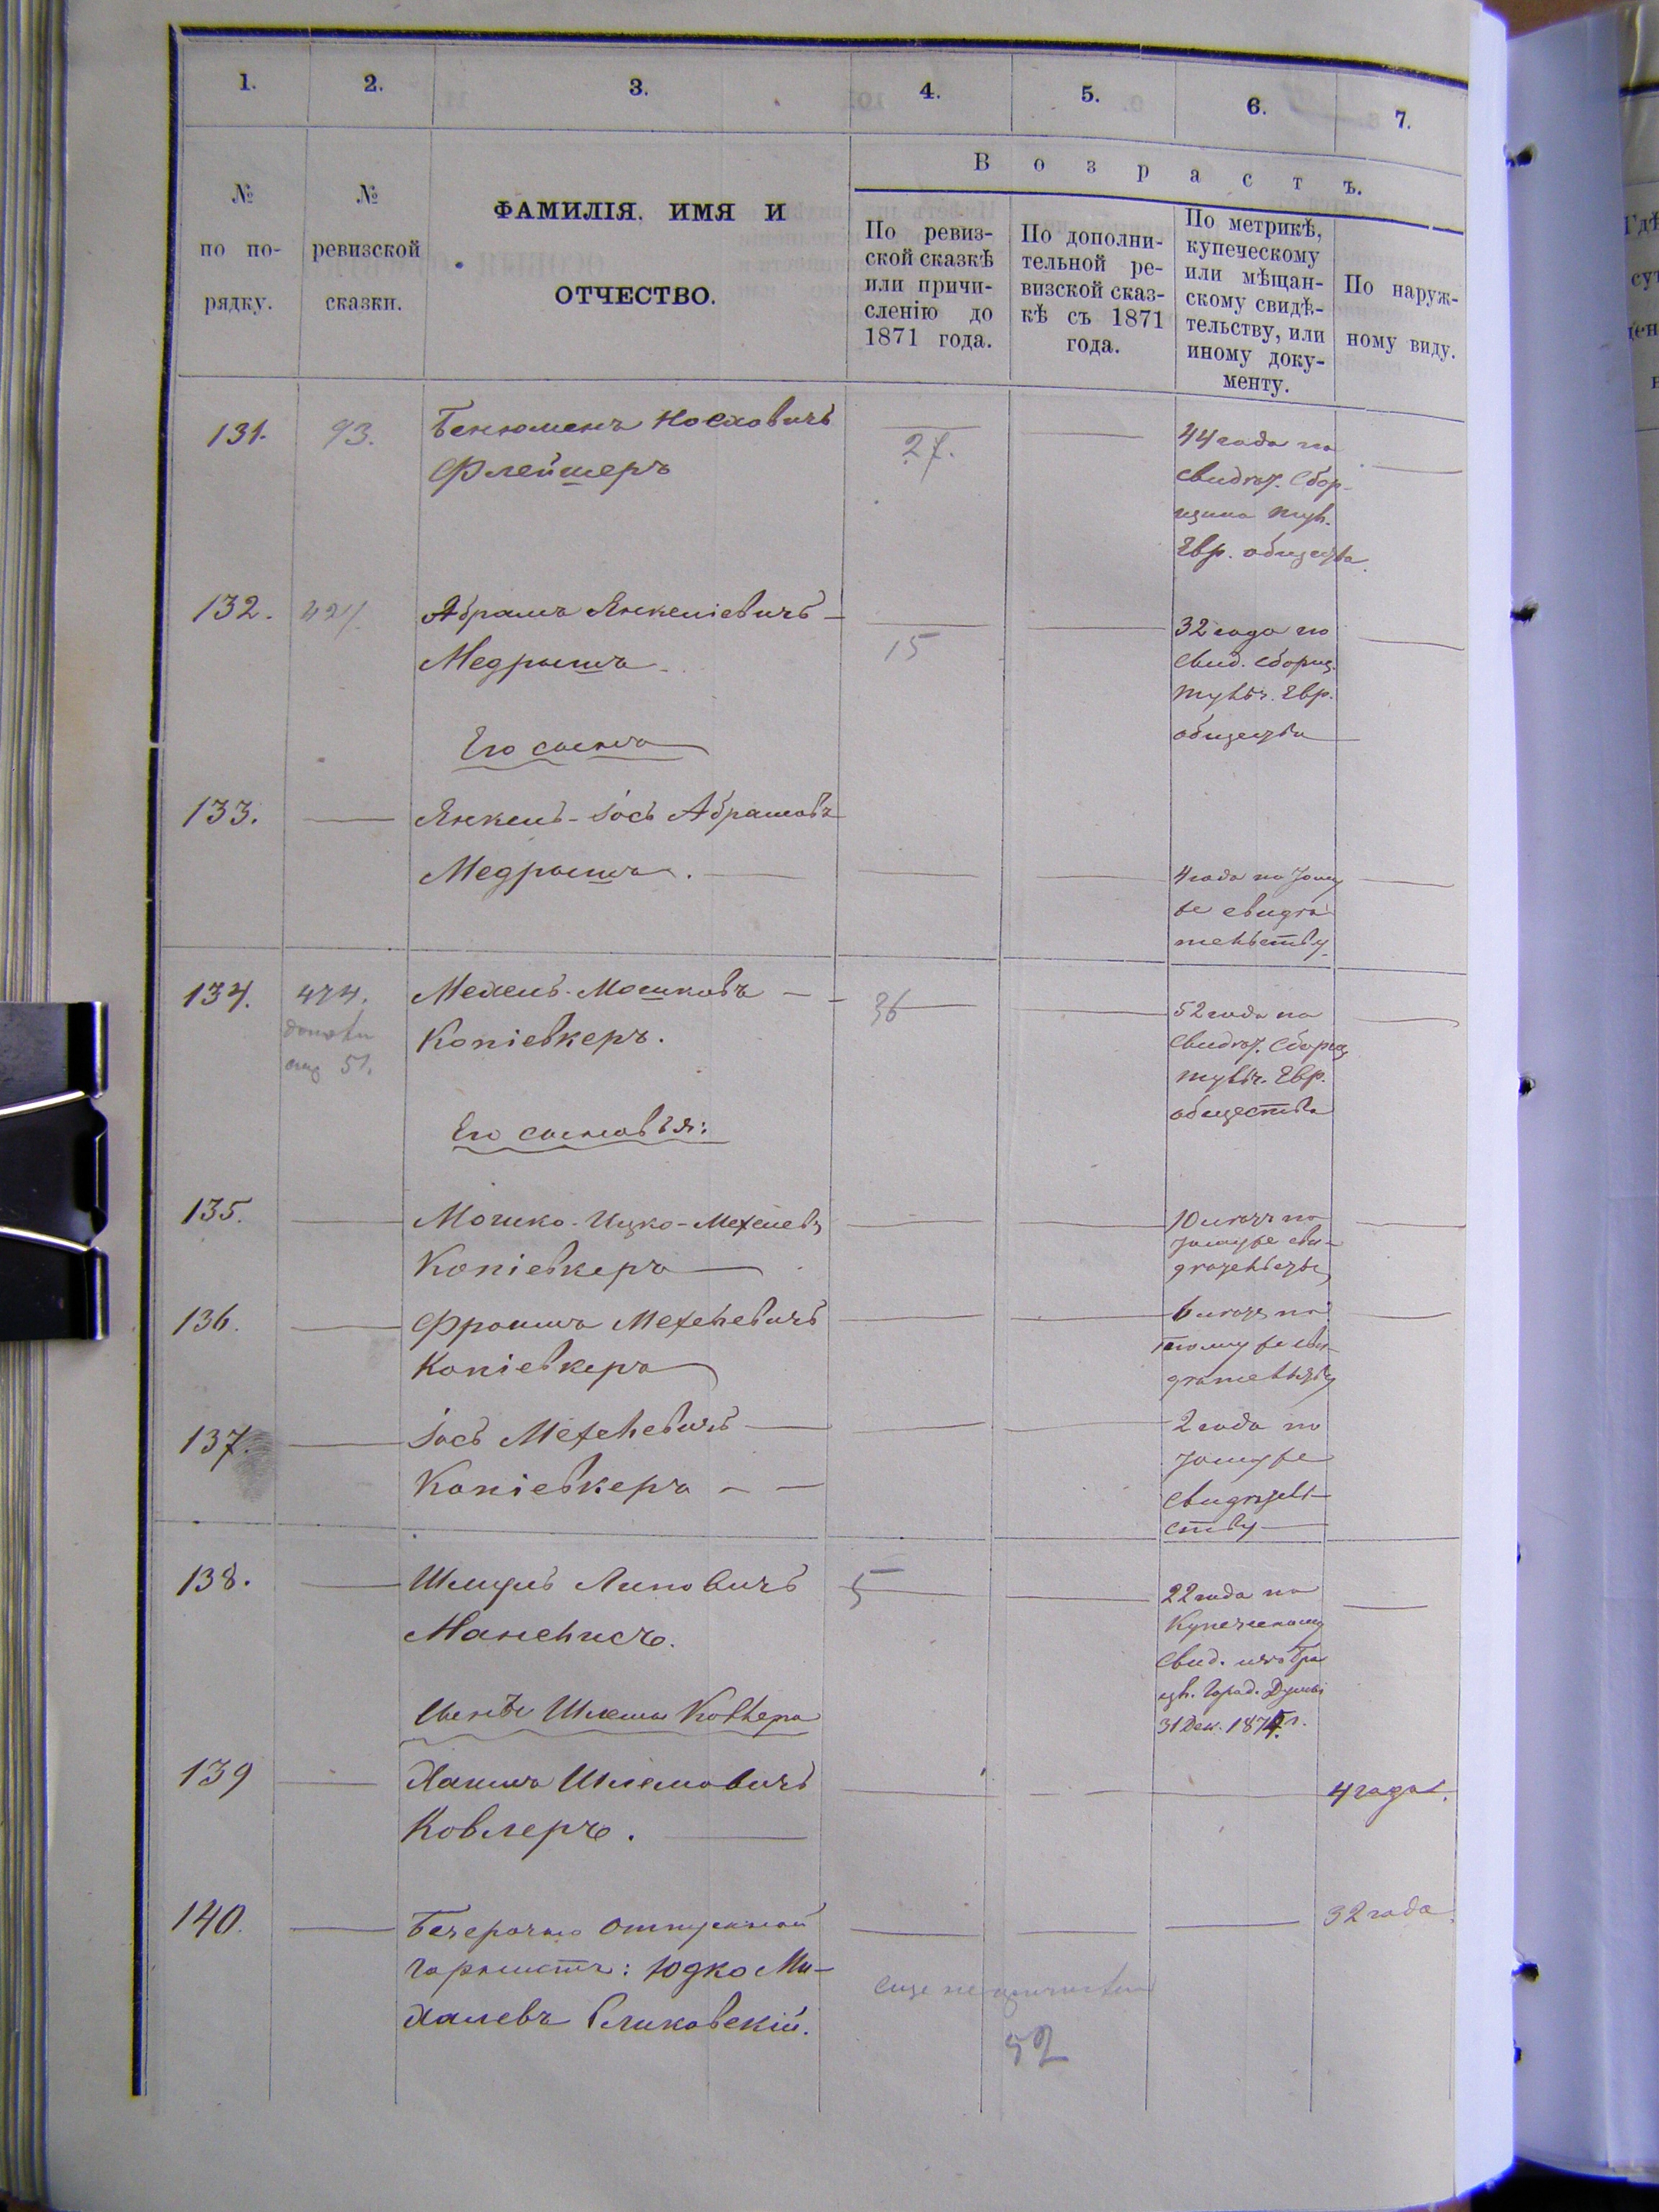 1. 2. 3. 4. 5. 6. 7.
В о з р а с т ъ.
№
по по-
рядку.
№
ревизской
сказки.
ФАМИЛІЯ, ИМЯ И
ОТЧЕСТВО.
По ревиз-
ской сказкѣ
или причи-
сленію до
1871 года.
По дополни-
тельной ре-
визской сказ-
кѣ съ 1871
года.
По метрикѣ,
купеческому
или мѣщан-
скому свидѣ-
тельству, или
иному доку-
менту.
По наруж-
ному виду.
131. 93. Бенюменъ Носховичъ
Флейшеръ
27.
44 года по
свидѣт. Сбор-
щика
Евр. общества.
132. Абрамъ Янкеліевичъ
Медрышъ
15
32 года по
свид. сборщ.
Евр.
общества
Его сынъ
133. Янкель-Іось Абрамовъ
Медрышъ.
4 года по тому
же свидѣ-
тельству.
134. 474. Мехель Мошковъ
51.
Копіевкеръ.
36
52 года по
свидѣт. Сборщ.
Евр.
общества
Его сыновья:
135. Мошко-Ицко-Мехелевъ
Копіевкеръ
10 лѣтъ по
тому же сви-
дѣтельству
136. Фроимъ Мехелевичъ
Копіевкеръ
6 лѣтъ по
тому же сви-
дѣтельству
137. Іось Мехелевичъ
Копіевкеръ
2 года по
тому же
свидѣтель-
ству
138. Шмуль Липовичъ
Манелисъ.
5
22 года по
Купеческому
свид.
Город. Думы
31 Дек. 187
Сынъ Шлемы Ковлера
139 Хаимъ Шлемовичъ
Ковлеръ.
4 года.
140. Безсрочно отпускной
горнистъ: Юдко Ми-
халевъ Сликовскій.
32 года
еще не
52